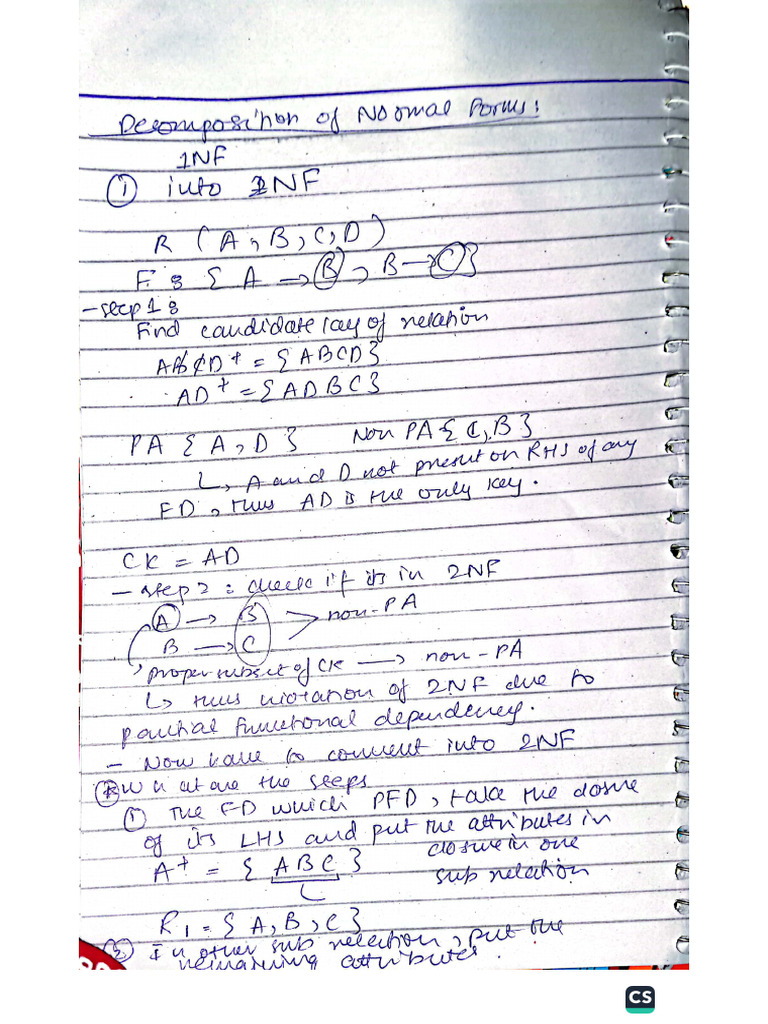 Decomposition of Normal Forms:
1NF
① into 2NF
R (A, B, C, D)
F: { A → B, B → C }
- step 1:
Find candidate key of relation
ABCD+ = {ABCD}
AD+ = {ADBC}
PA {A, D} Non PA {C, B}
↳ A and D not present on RHS of any
FD, thus AD is the only key.
CK = AD
- step 2: check if its in 2NF
A → B
B → C > non-PA
proper subset of CK → non-PA
↳ thus violation of 2NF due to
partial functional dependency.
- Now have to convert into 2NF
What are the steps
① The FD which PFD, take the closure
of its LHS and put the attributes in
closure in one
A+ = {ABC} sub relation
R1 = {A, B, C}
② In other sub relation, put the
remaining attributes.
CS